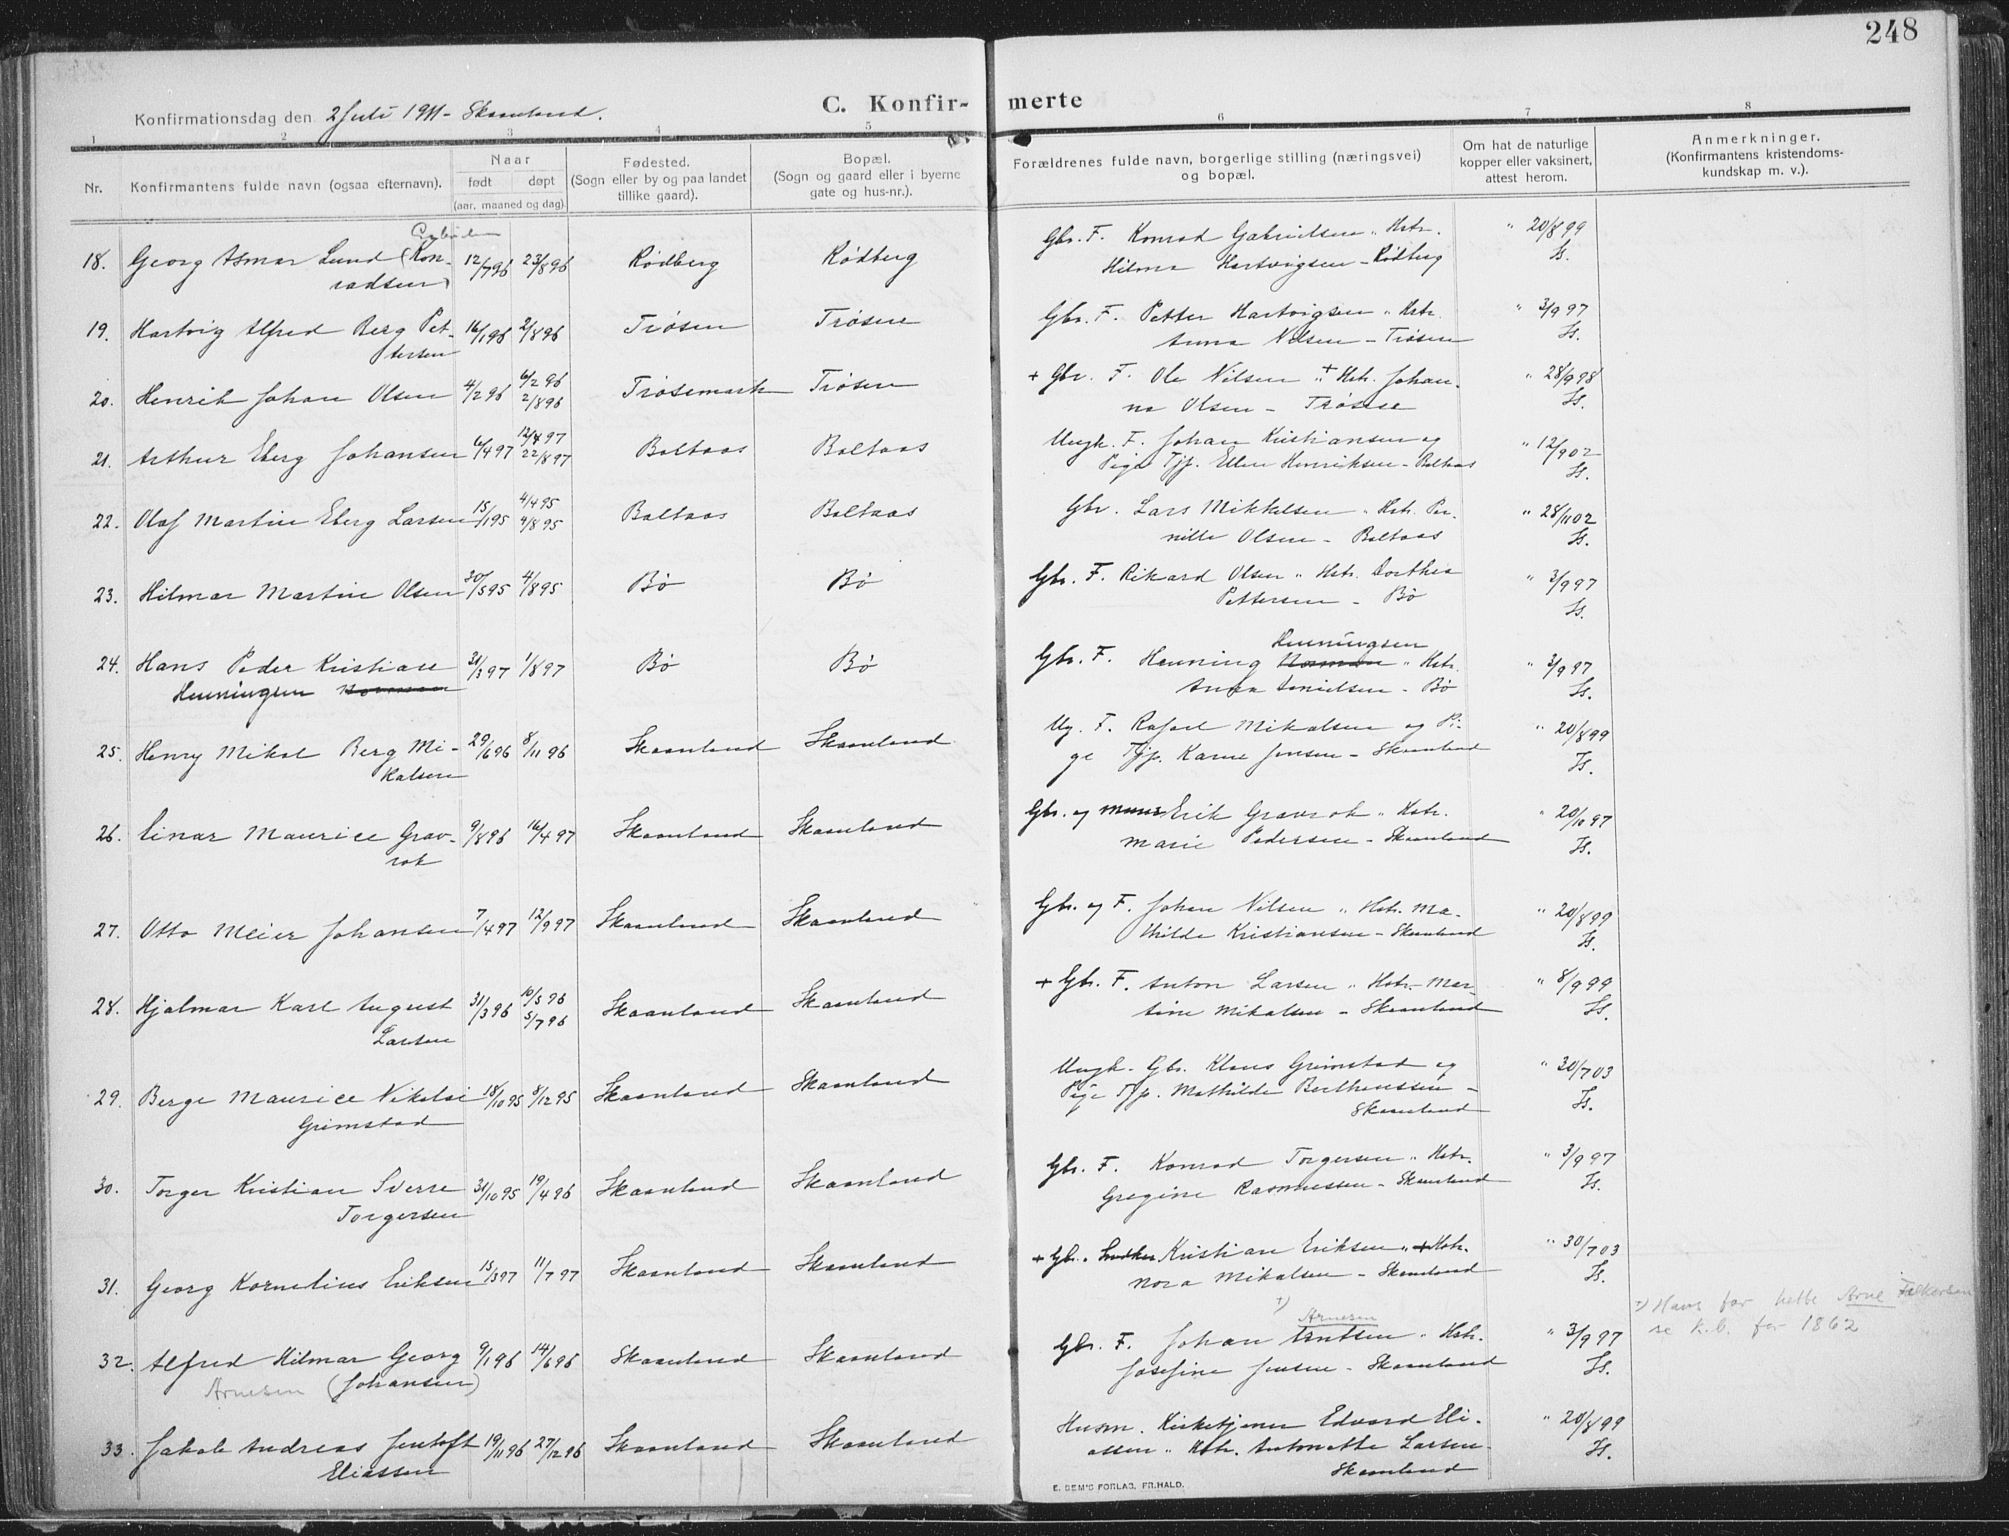 248
C. Konfir- merte
Konfirmationsdag den 2 Juli 1911 - Skaanland.
1 2 3 4 5 6 7 8
Nr.
Konfirmantens fulde navn (ogsaa efternavn).
Naar
født døpt
(aar, maaned og dag).
Fødested.
(Sogn eller by og paa landet
tillike gaard).
Bopæl.
(Sogn og gaard eller i byerne
gate og hus-nr.).
Forældrenes fulde navn, borgerlige stilling (næringsvei)
og bopæl.
Om hat de naturlige
kopper eller vaksinert,
attest herom.
Anmerkninger.
(Konfirmantens kristendoms-
kundskap m. v.).
18. Georg Asmar Lund (Kon- 12/7 96 23/8 96 Rødberg Rødberg Gbr. F. Konrad Gabrielsen " Hstr. " 20/8 99
radsen) Hilma Hartvigsen - Rødberg Is.
19. Hartvig Alfred Berg Pet- 16/1 96 2/8 96 Trøsen Trøsen Gbr. F. Petter Hartvigsen " Hstr. " 3/9 97
tersen Anna Nilsen - Trøsen Is.
20. Henrik Johan Olsen 4/2 96 6/2 96 2/8 96 Trøsemark Trøsen + Gbr. F. Ole Nilsen " + Hstr. Johan- " 28/9 98
na Olsen - Trøsen Is.
21. Arthur Eberg Johansen 6/4 97 12/4 97 22/8 97 Boltaas Boltaas Ungk. F. Johan Kristiansen og " 12/9 02
Pige Tjp. Ellen Henriksen - Boltaas Is.
22. Olaf Martin Eberg Larsen 15/1 95 4/4 95 4/8 95 Boltaas Boltaas Gbr. Lars Mikkelsen " Hstr. Per- " 28/11 02
nille Olsen - Boltaas Is.
23. Hilmar Martin Olsen 30/5 95 4/8 95 Bø Bø Gbr. F. Rikard Olsen " Hstr. Dorthea " 3/9 97
Pettersen - Bø Is.
Henningsen
24. Hans Peder Kristian 31/3 97 1/8 97 Bø Bø Gbr. F. Henning " Hstr. " 3/9 97
Henningsen Anna Danielsen - Bø Is.
25. Henry Mikal Berg Mi- 29/6 96 8/11 96 Skaanland Skaanland Ug. F. Rafael Mikalsen og Pi- " 20/8 99
kalsen ge Tjp. Karen Jensen - Skaanland Is.
26. Einar Maurice Grav- 9/8 96 16/4 97 Skaanland Skaanland Gbr. og Murer Erik Gravrok " Hstr. " 20/10 97
rok Marie Pedersen - Skaanland Is.
27. Otto Meier Johansen 7/4 97 12/9 97 Skaanland Skaanland Gbr. og F. Johan Nilsen " Hstr. Ma- " 20/8 99
thilde Kristiansen - Skaanland Is.
28. Hjalmar Karl August 31/3 96 10/5 96 5/7 96 Skaanland Skaanland + Gbr. F. Anton Larsen " Hstr. Mar- " 8/9 99
Larsen tine Mikalsen - Skaanland Is.
29. Berge Maurice Nikolai 18/10 95 8/12 95 Skaanland Skaanland Ungk. Gbr. Klaus Grimstad og " 30/7 03
Grimstad Pige Tjp. Mathilde Bertheussen - Is.
Skaanland
30. Torger Kristian Sverre 31/10 95 19/4 96 Skaanland Skaanland Gbr. F. Konrad Torgersen " Hstr. " 3/9 97
Torgersen Gregine Rasmussen - Skaanland Is.
31. Georg Kornelius Eriksen 15/3 97 11/7 97 Skaanland Skaanland + Gbr. Snedker Kristian Eriksen " + Hstr. " 30/7 03
Nora Mikalsen - Skaanland Is.
+) Hans far hette Arne Falkersen
se k.b. for 1862
+) Arnesen
32. Alfred Hilmar Georg 9/1 96 14/6 96 Skaanland Skaanland Gbr. F. Johan Arntsen " Hstr. " 3/9 97
Arnesen (Johansen) Josefine Jensen - Skaanland Is.
33. Jakob Andreas Jentoft 19/11 96 27/12 96 Skaanland Skaanland Husm. Kirketjener Edvard Eli- " 20/8 99
Eliassen assen " Hstr. Antonette Larsen - Is.
Skaanland
E. SEM'S FORLAG, FR.HALD.